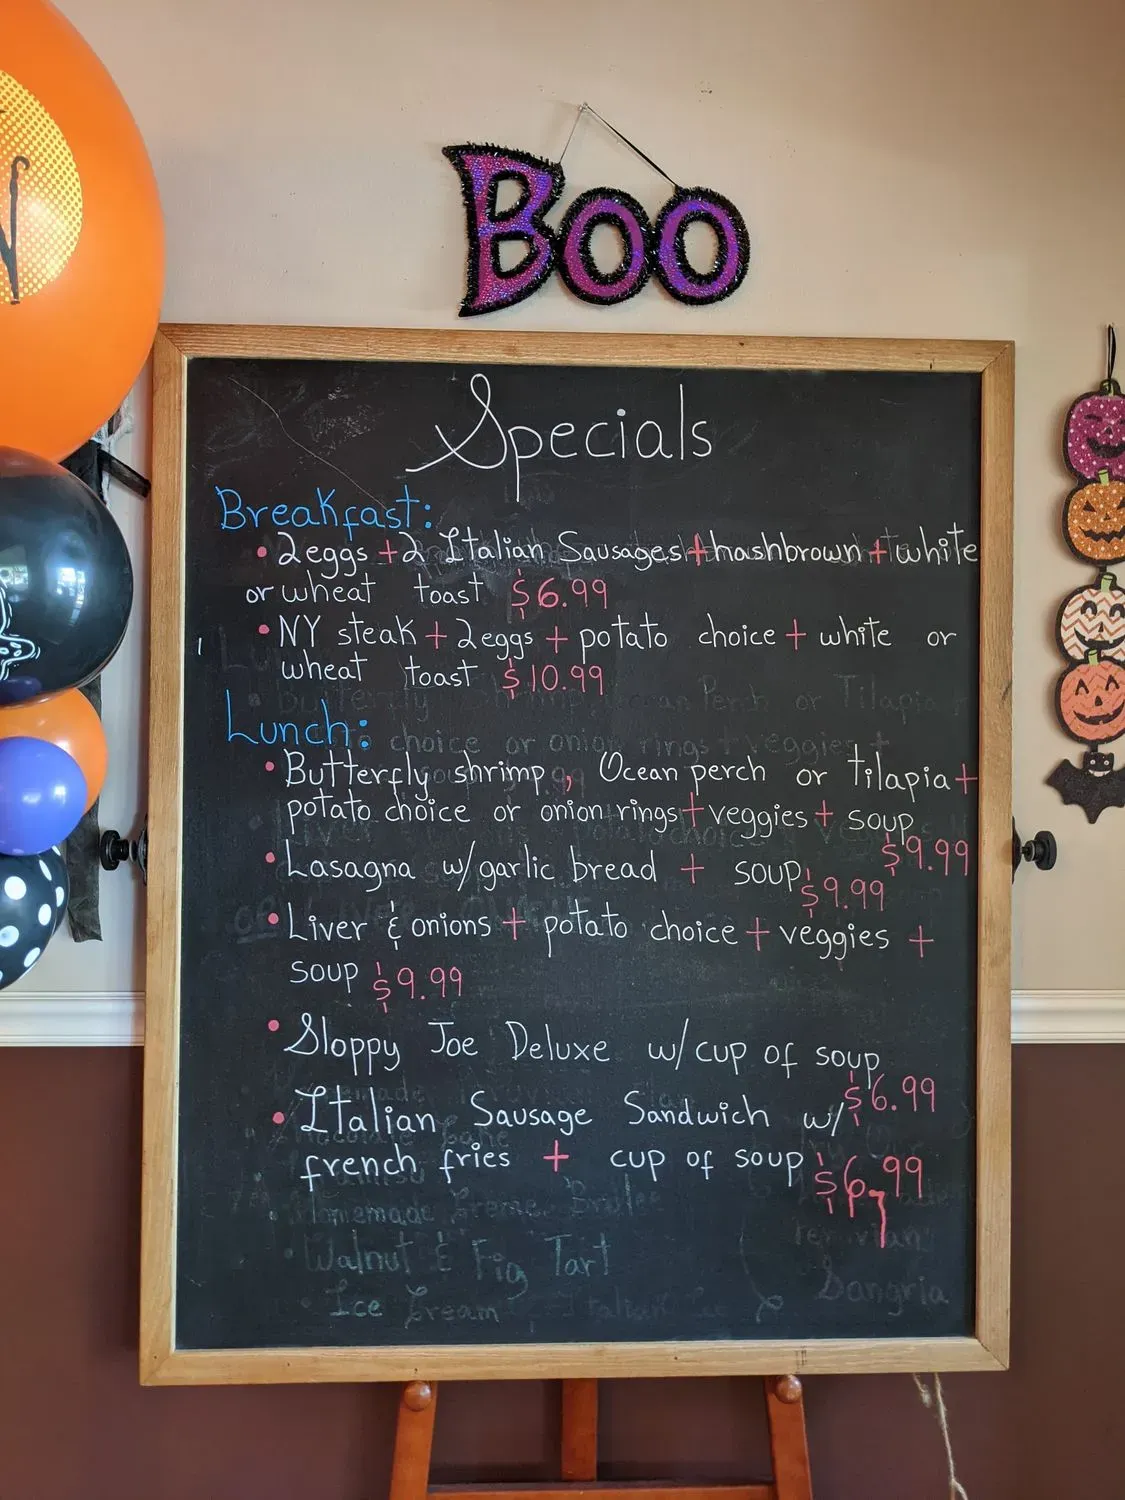 N
BOO
Specials
Breakfast:
• 2 eggs + 2 Italian Sausages + hashbrown + white
or wheat toast $6.99
• NY steak + 2 eggs + potato choice + white or
wheat toast $10.99
Lunch:
• Butterfly shrimp, Ocean perch or tilapia +
potato choice or onion rings + veggies + soup
$9.99
• Lasagna w/ garlic bread + soup $9.99
• Liver & onions + potato choice + veggies +
soup $9.99
• Sloppy Joe Deluxe w/ cup of soup
$6.99
• Italian Sausage Sandwich w/
french fries + cup of soup $6.99
• Homemade Creme Brulee
• Walnut & Fig Tart
Sangria
• Ice Cream, Italian Ice